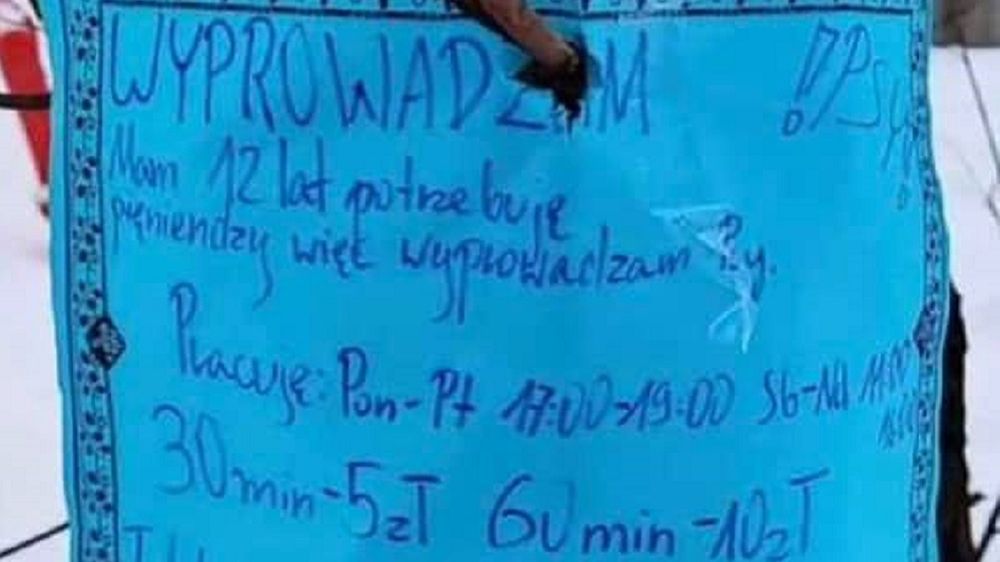 WYPROWADZAM !! Psy
Mam 12 lat potrzebuję
pęniendzy więc wyprowadzam Psy.
Pracuję: Pon-Pt 17:00-19:00 Sb-Nd 11:00
30min-5zł 60min-10zł